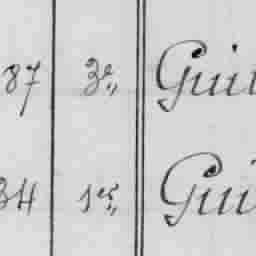 87 3e,, Gui
34 1er,, Gui